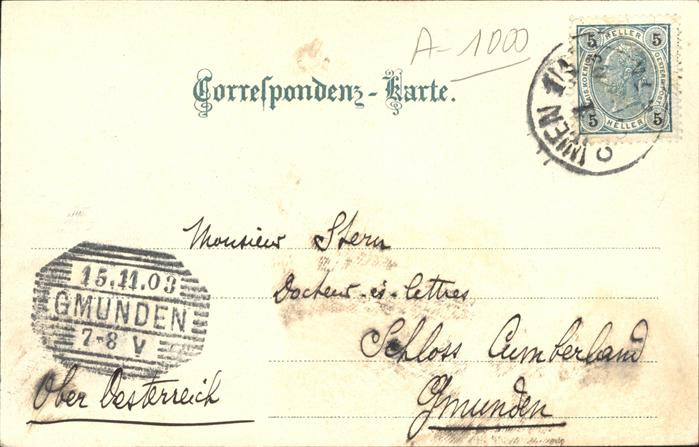 A-1000
5 HELLER 5
5 HELLER 5
WIEN 1/1
Correspondenz-Karte.
Monsieur Stern
Docteur-ès-lettres
Schloss Cumberland
Gmunden
Ober Oesterreich
15.11.03
GMUNDEN
7-8 V